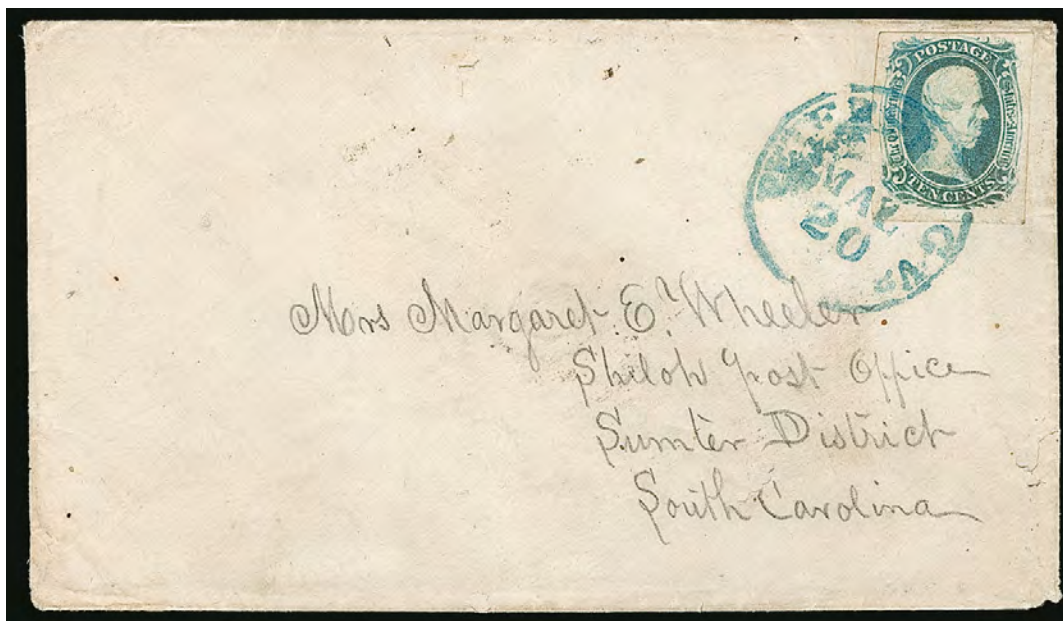 POSTAGE
TEN CENTS
MAY
20
Va
Mrs Margaret E. Wheeler
Shiloh Post Office
Sumter District
South Carolina